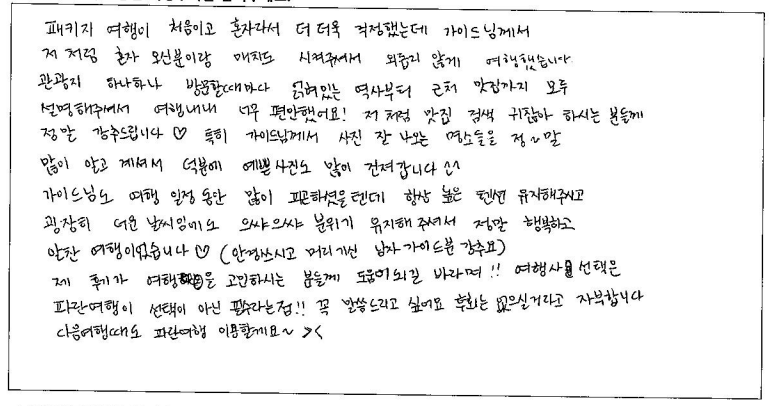 패키지 여행이 처음이고 혼자라서 더 더욱 걱정했는데 가이드님께서
저 처럼 혼자 오신분이랑 매치도 시켜주셔서 외롭지 않게 여행했습니다
관광지 하나하나 방문할때마다 얽혀있는 역사부터 근처 맛집까지 모두
설명해주셔서 여행내내 너무 편안했어요! 저 처럼 맛집 검색 귀찮아 하시는 분들께
정말 강추드립니다 ♡ 특히 가이드님께서 사진 잘 나오는 명소들을 정~말
많이 알고 계셔서 덕분에 예쁜사진도 많이 건져갑니다 ^^
가이드님도 여행 일정 동안 많이 피곤하셨을텐데 항상 높은 텐션 유지해주시고
굉장히 더운 날씨임에도 으쌰으쌰 분위기 유지해 주셔서 정말 행복하고
알찬 여행이었습니다 ♡ (안경쓰시고 머리 기신 남자 가이드분 강추요)
제 후기가 여행을 고민하시는 분들께 도움이되길 바라며 !! 여행사 선택은
파란여행이 선택이 아닌 필수라는점!! 꼭 말씀드리고 싶어요 후회는 없으실거라고 자부합니다
다음여행때도 파란여행 이용할게요~ ><